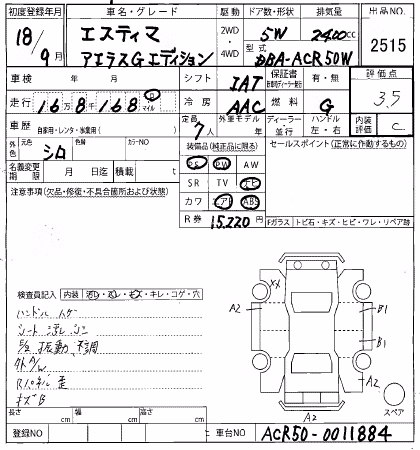 初度登録年月 車名・グレード 駆動 ドア数・形状 排気量 出品NO.
18/9月 エスティマ アエラスGエディション 2WD・4WD 5W 2400cc 2515
型式 DBA-ACR50W
車検 年 月 シフト IAT 保証書 有・無 評価点
走行 16万8千168 マイル 冷房 AAC 燃料 G 3.5
車歴 自家用・レンタ・事業用( ) 定員 7人 外車モデル 年 ディーラー・並行 ハンドル 左・右 内装評価 C
外色 シロ 色替 カラーNO
装備品(純正品に限る) セールスポイント(正常に作動するもの)
名義変更期限 月 日迄 積載 t
PS PW AW
注意事項(欠品・修復・不具合箇所および状態)
SR TV ナビ
カワ エアB ABS
R券 15,220円
Fガラス トビ石・キズ・ヒビ・ワレ・リペア跡
検査員記入 内装 汚レ・スレ・キズ・キレ・コゲ・穴
ハンドルスレ
振動 不調
外A/W
Rパネル歪
キズB
XX
A2 B1
B1
A2
A2
スペア
長さ cm 幅 cm 高さ cm
登録NO 車台NO ACR50-0011884